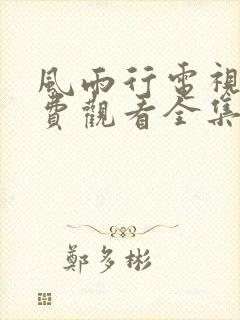 風雨行電視
費觀看全集
鄭多彬